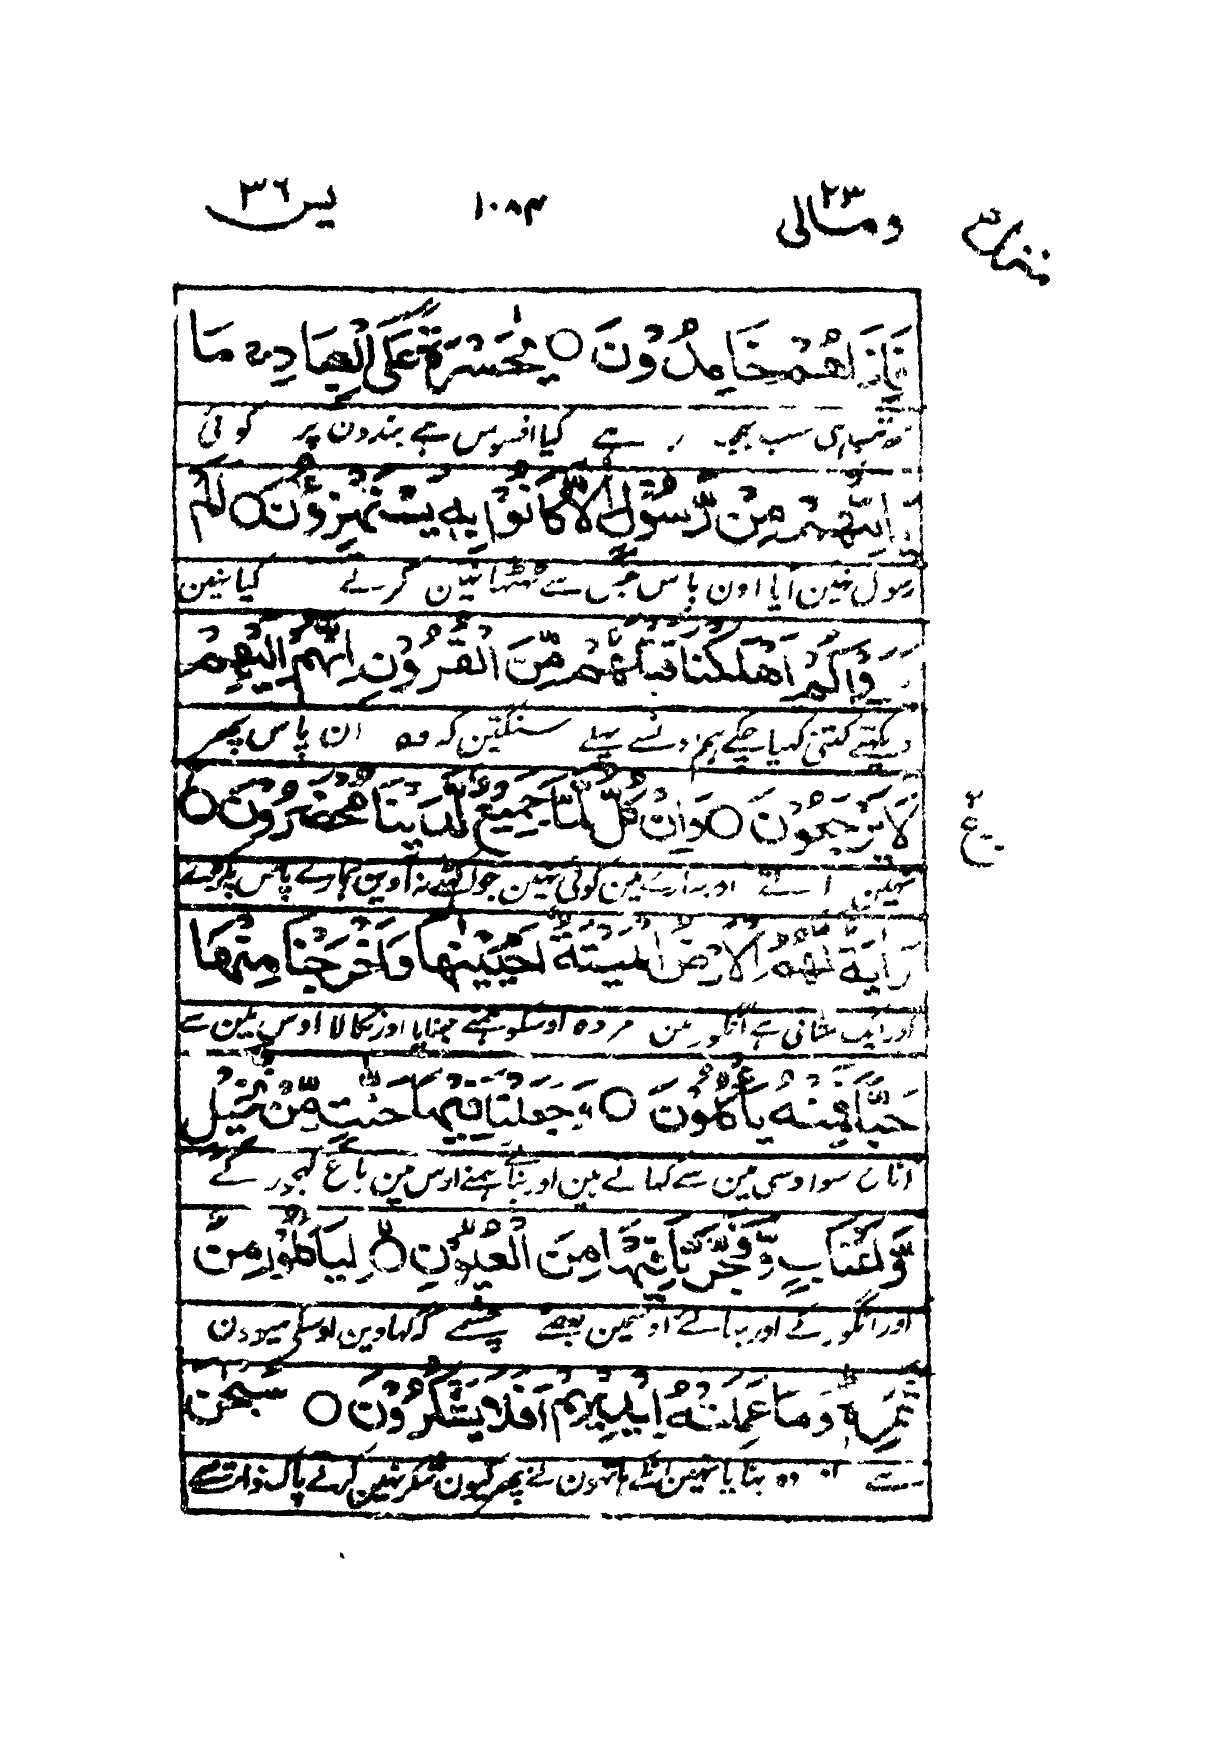 منزل ۵ ومالی ۲۳ ۱۰۸۴ یٰس ۳۶
فَاِذَا هُمْ خَامِدُوْنَ ○ يٰحَسْرَةً عَلَى الْعِبَادِ مَا
تب ہی سب بجھ رہے کیا افسوس ہے بندون پر کوئی
يَاْتِيْهِمْ مِّنْ رَّسُوْلٍ اِلَّا كَانُوْا بِهٖ يَسْتَهْزِءُوْنَ ○ اَلَمْ
رسول نہین آیا اون پاس جس سے ٹھٹھا نہین کرتے کیا نہین
يَرَوْا كَمْ اَهْلَكْنَا قَبْلَهُمْ مِّنَ الْقُرُوْنِ اَنَّهُمْ اِلَيْهِمْ
دیکھتے کتنی کھپا چکے ہم اونسے پہلے سنگتین کہ وہ ان پاس پھر
لَا يَرْجِعُوْنَ ○ وَاِنْ كُلٌّ لَّمَّا جَمِيْعٌ لَّدَيْنَا مُحْضَرُوْنَ ○
نہین آتے اور سارے مین کوئی نہین جو اکٹھے نہ آوین ہمارے پاس پکڑے
ع ۲
وَاٰيَةٌ لَّهُمُ الْاَرْضُ الْمَيْتَةُ اَحْيَيْنٰهَا وَاَخْرَجْنَا مِنْهَا
اور ایک نشانی ہے انکو زمین مردہ اوسکو ہمنے جلایا اور نکالا اوس مین سے
حَبًّا فَمِنْهُ يَاْكُلُوْنَ ○ وَجَعَلْنَا فِيْهَا جَنّٰتٍ مِّنْ نَّخِيْلٍ
اناج سو اوسی مین سے کھاتے ہین اور بنائے ہمنے اوس مین باغ کھجور کے
وَّاَعْنَابٍ وَّفَجَّرْنَا فِيْهَا مِنَ الْعُيُوْنِ ○ لِيَاْكُلُوْا مِنْ
اور انگور کے اور بہائے اوسمین بعضے چشمے کہ کھاوین اوسکی میوون
ثَمَرِهٖ وَمَا عَمِلَتْهُ اَيْدِيْهِمْ اَفَلَا يَشْكُرُوْنَ ○ سُبْحٰنَ
سے اور وہ بنایا نہین انکے ہاتھون نے پھر کیون شکر نہین کرتے پاک ذات ہے